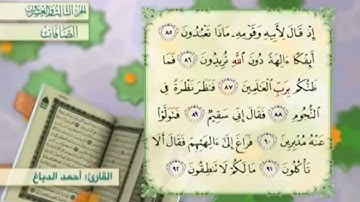 الجزء الثالث والعشرون
الصافات
إِذْ قَالَ لِأَبِيهِ وَقَوْمِهِ مَاذَا تَعْبُدُونَ ٨٥
أَئِفْكًا آلِهَةً دُونَ اللَّهِ تُرِيدُونَ ٨٦ فَمَا
ظَنُّكُم بِرَبِّ الْعَالَمِينَ ٨٧ فَنَظَرَ نَظْرَةً فِي
النُّجُومِ ٨٨ فَقَالَ إِنِّي سَقِيمٌ ٨٩ فَتَوَلَّوْا
عَنْهُ مُدْبِرِينَ ٩٠ فَرَاغَ إِلَىٰ آلِهَتِهِمْ فَقَالَ أَلَا
تَأْكُلُونَ ٩١ مَا لَكُمْ لَا تَنطِقُونَ ٩٢
القارئ: أحمد الدباغ